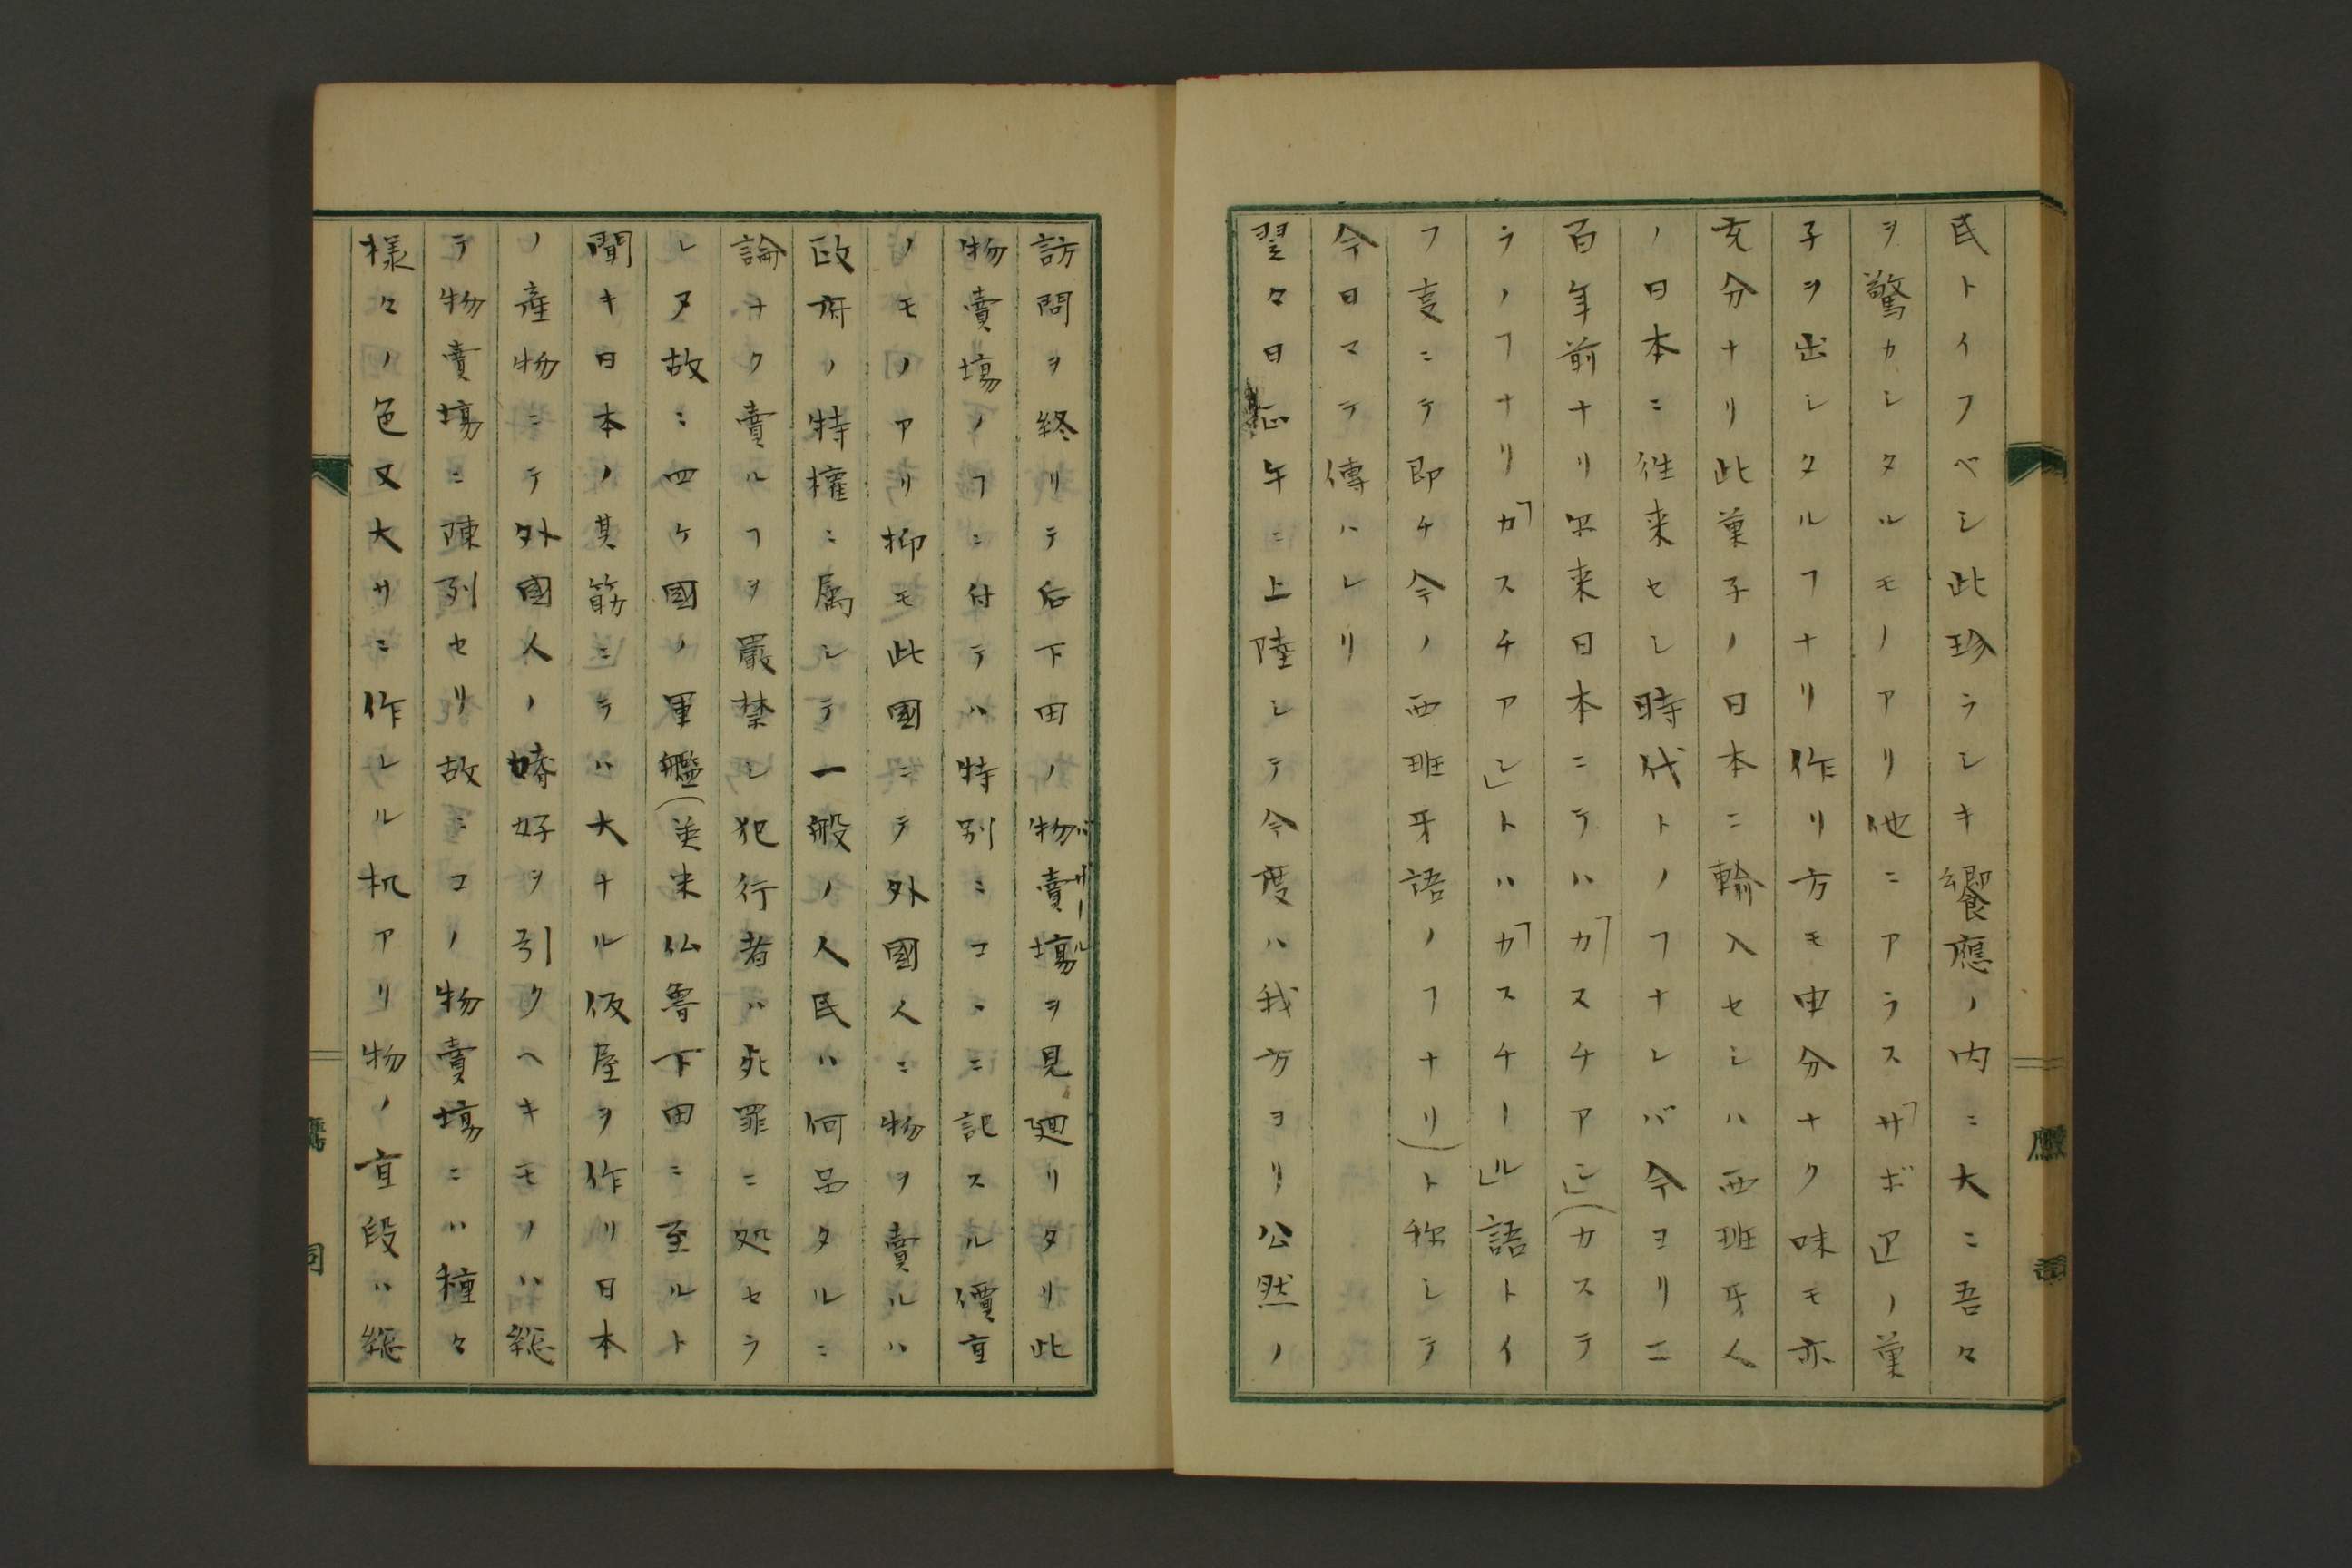 民トイフベシ此珍ラシキ饗應ノ内ニ大ニ吾々
ヲ驚カシタルモノアリ他ニアラス「サボア」ノ菓
子ヲ出シタルヿナリ作リ方モ申分ナク味モ亦
充分ナリ此菓子ノ日本ニ輸入セシハ西班牙人
ノ日本ニ徃来セシ時代トノヿナレバ今ヨリニ
百年前ナリ尓来日本ニテハ「カスチアシ」(カステ
ラノヿナリ「カスチアシ」トハ「カスチール」語トイ
フ㕝ニテ即チ今ノ西班牙語ノヿナリ)ト称シテ
今日マテ傳ハレリ
翌々日正午ニ上陸シテ今度ハ我方ヨリ公然ノ
訪問ヲ終リテ后下田ノ物賣塲ヲ見廻リタリ此
バザール
物賣塲ノヿニ付テハ特別ニコヽニ記スル價直
ノモノアリ抑モ此國ニテ外國人ニ物ヲ賣ルハ
政府ノ特權ニ属シテ一般ノ人民ハ何品タルニ
論ナク賣ルヿヲ嚴禁シ犯行者ハ死罪ニ処セラ
レタ故ニ四ケ國ノ軍艦(英米仏魯下田ニ至ルト
聞キ日本ノ其筋ニテハ大ナル仮屋ヲ作リ日本
ノ産物ニテ外國人ノ嗜好ヲ引クヘキモノハ総
テ物賣塲ニ陳列セリ故ニコノ物賣塲ニハ種々
様々ノ色又大サニ作レル机アリ物ノ直段ハ総